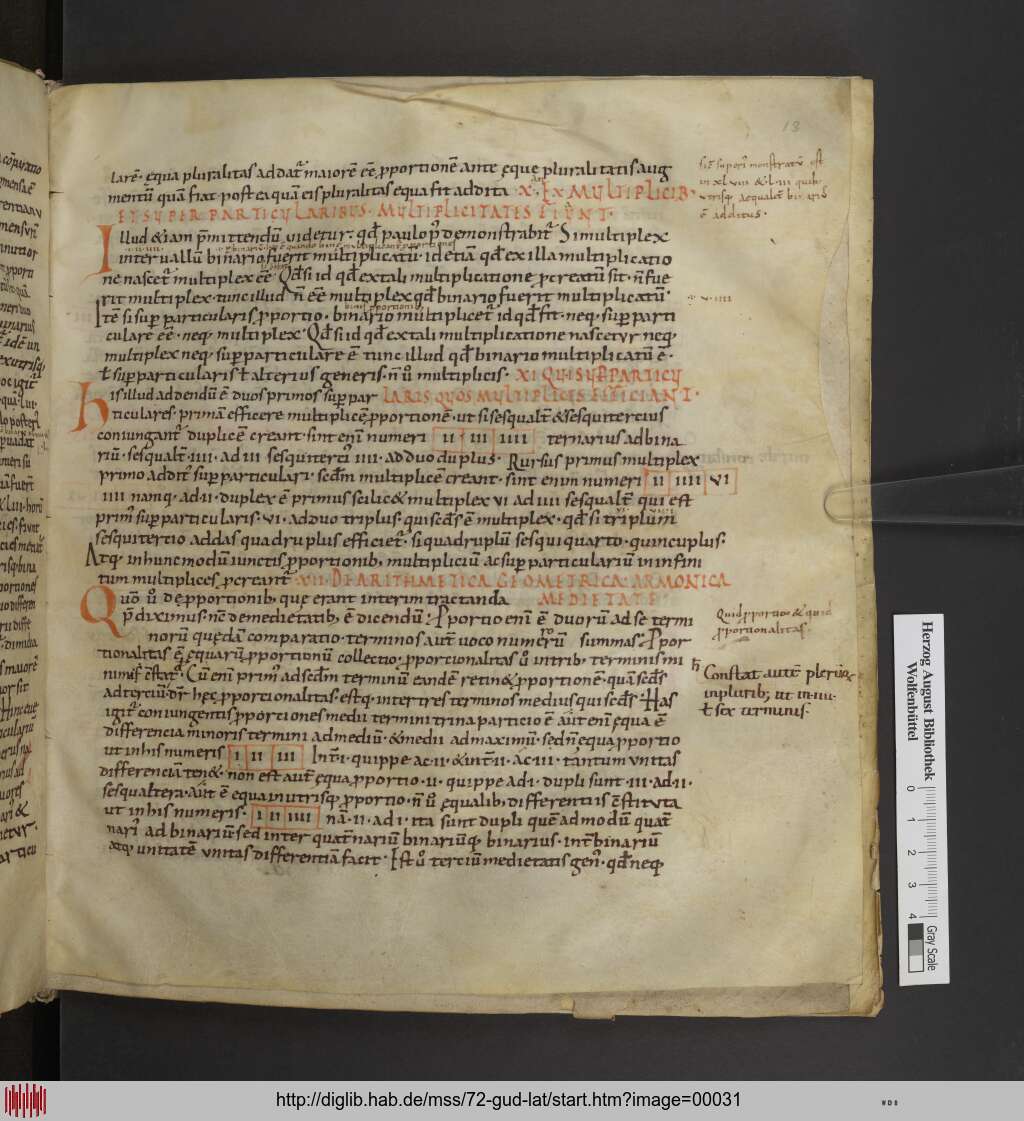 larē· ęqua pluralitas addat᷑ maiorē eē ꝓportionē ante ęque pluralitatis aug
mentū quā fiat post ea quā eis pluralitas equa fit addita · X · EX MULTIPLICIB·
ET SUPERPARTICULARIBUS· MULTIPLICITATES FIUNT·
Illud etiam p̄mittendū videtur· qd̄ paulo p᷒ demonstrabit᷑ Si multiplex
intervallū binario fuerit multiplicatū· id etiā qd̄ ex illa multiplicatio
ne nascet᷑ multiplex eē· Qd̄ si id qd̄ ex tali multiplicatione ꝓcreatū sit· n̄ fue
rit multiplex· tunc illud n̄ eē multiplex qd̄ binario fuerit multiplicatū·
Itē si sup particularis ꝓportio· binario multiplicet᷑ id qd̄ fit· neq· sup parti
culare eē· neq· multiplex· Qd̄ si id qd̄ ex tali multiplicatione nascetur neq·
multiplex neq· sup particulare ē tunc illud qd̄ binario multiplicatū ē·
ł sup particularis ł alterius generis· n̄ ů multiplicis· XI QUI SUPPARTICU
his illud addendū ē duos primos sup par LARIS QUOS MULTIPLICES EFFICIANT·
ticulares· primā efficere multiplicē ꝓportionē· ut si sesqualt᷑ & sesquitertius
coniungant᷑ duplicē creant· sint enī numeri II III IIII ternarius ad bina
riū· sesqualt᷑ IIII· ad III sesquiterti᷒ IIII· ad duo duplus· Rursus primus multiplex
primo addit᷑ sup particulari· secdm̄ multiplicē creant· sint enim numeri II IIII VI
IIII namq· ad II· duplex ē primus scilic& multiplex VI ad IIII sesqualt᷑ qui est
prim᷒ sup particularis· VI· ad duo triplus· qui scds̄ ē multiplex· qd̄ si triplum̄
sesquitertio addas quadruplus efficiet᷑· si quadruplū sesquiquarto· quincuplus·
Atq· in hunc modū iunctis ꝓportionib; multipliciū ac sup particulariū in infini
tum multiplices ꝓcreant᷑ · XII· DE ARITHMETICA GEOMETRICA ARMONICA
Quō ů de ꝓportionib; quę erant interim tractanda MEDIETATE
p̄diximus· nc̄ de medietatib; ē dicendū· Pportio enī ē duorū ad se termi
norū quędam comparatio· terminos aut̄ voco numerū summas· Ppor
tionalitas ē ęquarū ꝓportionū collectio· ꝓportionalitas ů in trib; terminis mi
nimis c̄stat᷑· Cū enī prim᷒ ad scdm̄ terminū eandē retin& ꝓportionē· quā scds̄
ad tertiū· dr̄ hęc ꝓportionalitas· estq· inter tres terminos medius qui scds̄· Has
igit᷑ coniungentis ꝓportiones medii termini trina particio ē aut̄ enī equa ē
differencia minoris termini ad mediū· & medii ad maximū· sed n̄ equa ꝓportio
ut in his numeris I II III Int᷑· I· quippe ac· II· & int᷑· II· ac· III· tantum unitas
differenciā ten&· non est aut̄ ęqua ꝓportio· II· quippe ad· I· dupli sunt· III· ad· II·
sesqualtera· Aut̄ ē equa in utrisq; ꝓportio· n̄ ů ęqualib; differentiis c̄stituta
ut in his numeris· I II IIII nā· II· ad· I· ita sunt dupli quē ad modū quat᷑
nari᷒ ad binariū· sed inter quat᷑nariū binariūq· binarius· int᷑ binariū
atq· unitatē unitas differentiā facit· Est ů tertiū medietatis gen᷒· qd̄ neq·
13
sic᷑ superi᷒ monstratū est
in XLVIII & LIII quib·
utrisq· aequalit᷑ binari᷒
ē additus·
Quid ꝓportio & quid
ꝓportionalitas·
Constat autē pleruq·
in plurib; ut in· IIII·
ł sex terminis·
Herzog August Bibliothek
Wolfenbüttel
0 1 2 3 4
Gray Scale
http://diglib.hab.de/mss/72-gud-lat/start.htm?image=00031